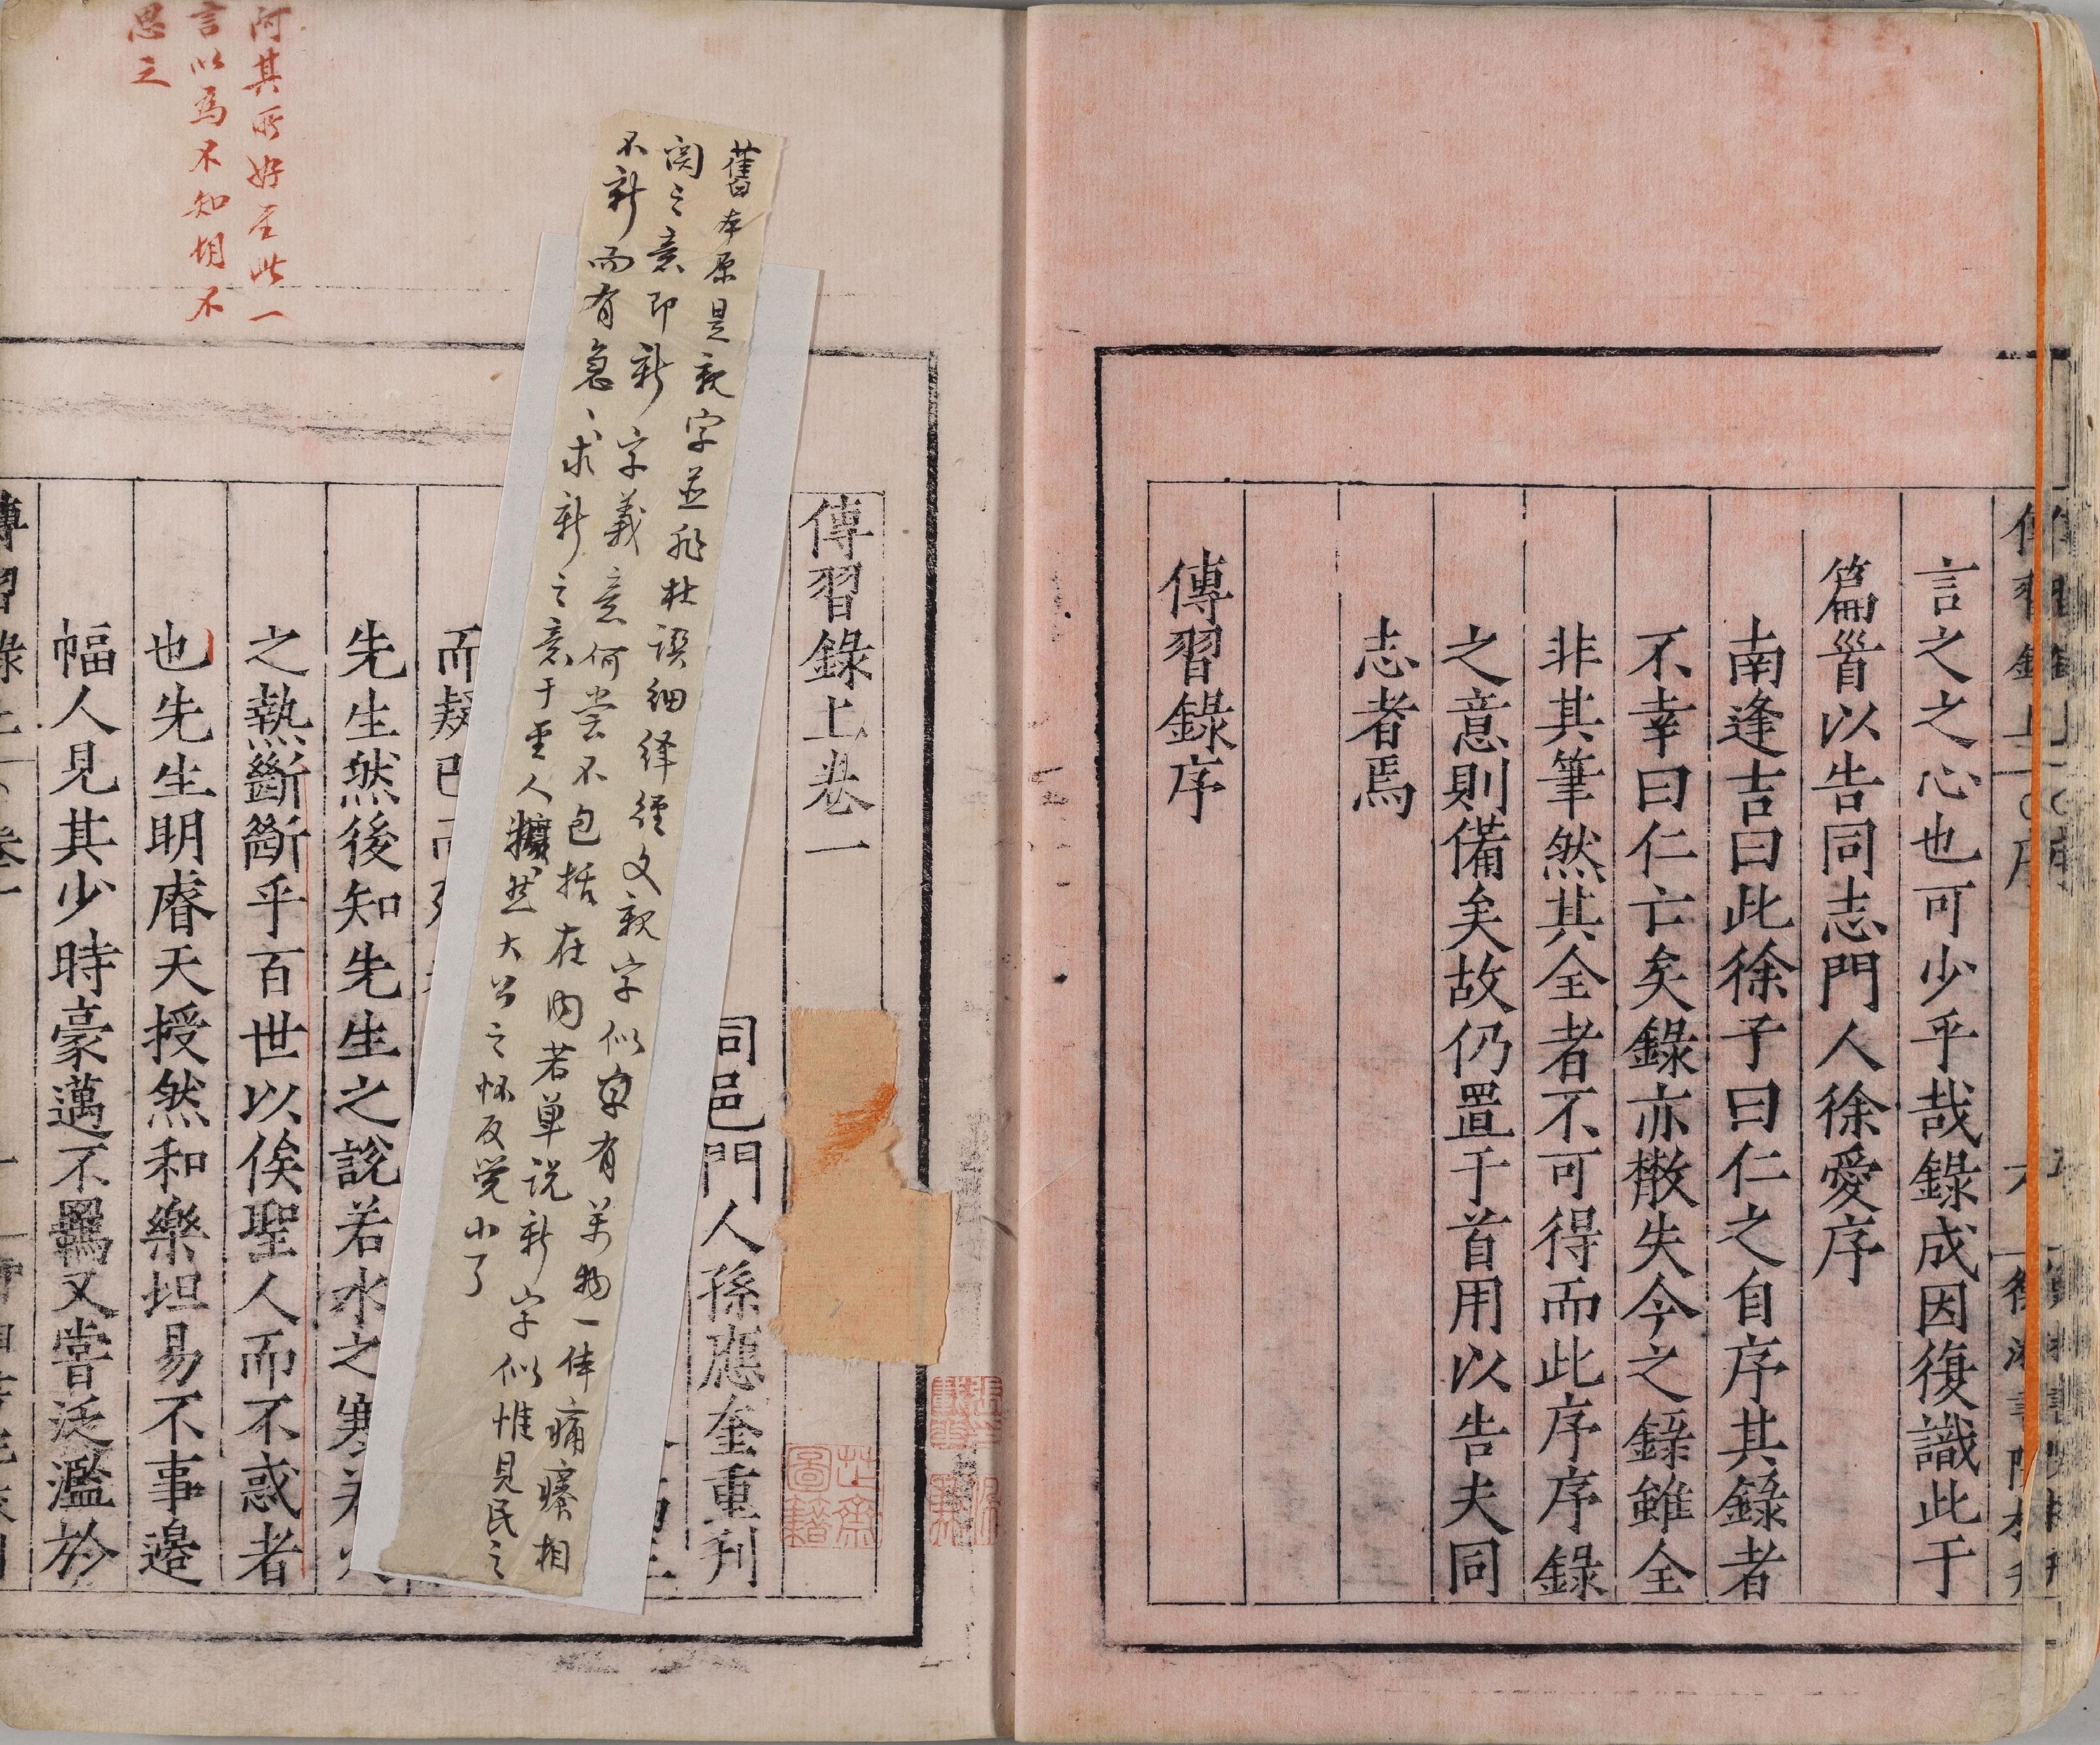 言之之心也可少乎哉錄成因復識此于
篇首以告同志門人徐愛序
南逢吉曰此徐子曰仁之自序其錄者
不幸曰仁亡矣錄亦散失今之錄雖全
非其筆然其全者不可得而此序序錄
之意則備矣故仍置于首用以告夫同
志者焉
傳習錄序
傳習錄上卷一
同邑門人孫應奎重刋
舊本原是親字並非杜撰细绎經文親字似有萬物一体痛癢相
関之意即新字義意何尝不包括在內若单说新字似惟見民之
不新而有急〻求新之意于聖人擴然大公之怀反覺小了
先生然後知先生之說若水之寒若火
之熱斷斷乎百世以俟聖人而不惑者
也先生明睿天授然和樂坦易不事邊
幅人見其少時豪邁不羈又嘗泛濫於
阿其所好至此一
言以為不知胡不
思之
芷齋圖籍